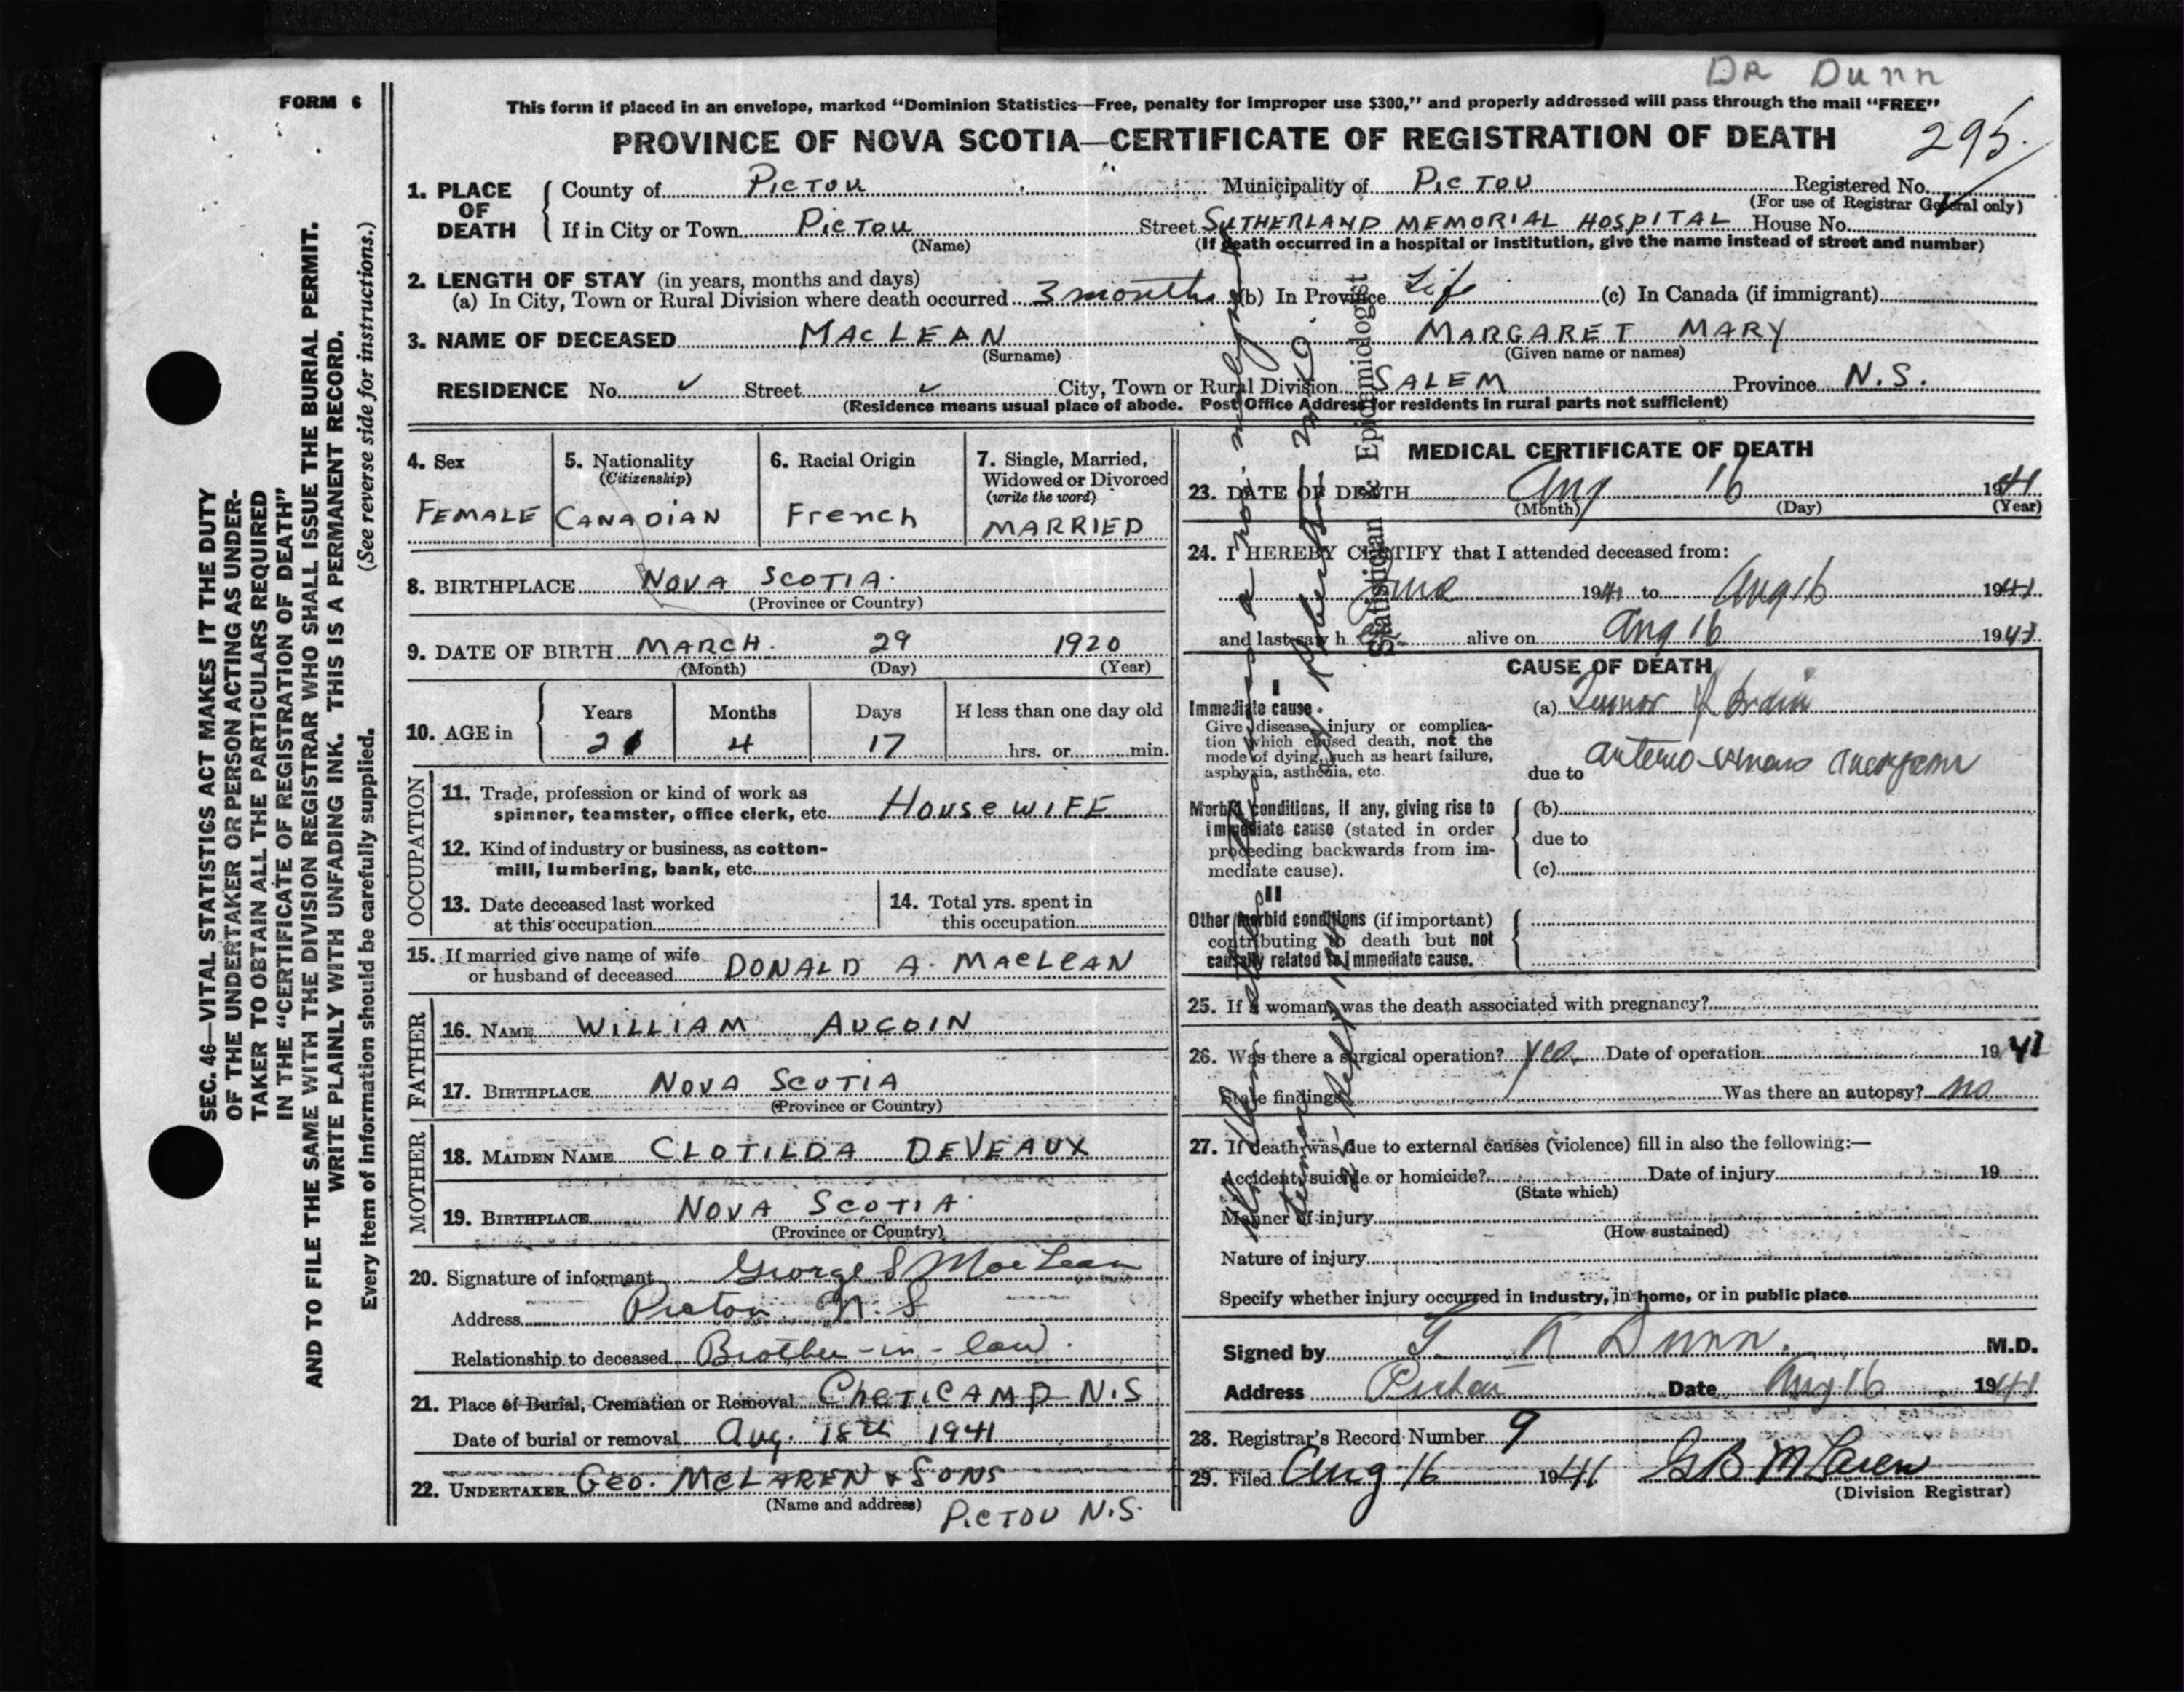 DR DUNN
FORM 6
This form if placed in an envelope, marked "Dominion Statistics—Free, penalty for improper use $300," and properly addressed will pass through the mail "FREE"
PROVINCE OF NOVA SCOTIA—CERTIFICATE OF REGISTRATION OF DEATH
295.
1. PLACE OF DEATH
County of PICTOU Municipality of PICTOU Registered No.
(For use of Registrar General only)
If in City or Town PICTOU Street SUTHERLAND MEMORIAL HOSPITAL House No.
(Name) (If death occurred in a hospital or institution, give the name instead of street and number)
2. LENGTH OF STAY (in years, months and days)
(a) In City, Town or Rural Division where death occurred 3 months (b) In Province Life (c) In Canada (if immigrant)
3. NAME OF DECEASED MACLEAN MARGARET MARY
(Surname) (Given name or names)
RESIDENCE No. ✓ Street ✓ City, Town or Rural Division SALEM Province N.S.
(Residence means usual place of abode. Post Office Address for residents in rural parts not sufficient)
4. Sex
FEMALE
5. Nationality
(Citizenship)
CANADIAN
6. Racial Origin
French
7. Single, Married,
Widowed or Divorced
(write the word)
MARRIED
8. BIRTHPLACE NOVA SCOTIA.
(Province or Country)
9. DATE OF BIRTH MARCH. 29 1920
(Month) (Day) (Year)
10. AGE in
Years Months Days If less than one day old
21 4 17 hrs. or min.
OCCUPATION
11. Trade, profession or kind of work as
spinner, teamster, office clerk, etc. HOUSEWIFE
12. Kind of industry or business, as cotton-
mill, lumbering, bank, etc.
13. Date deceased last worked
at this occupation
14. Total yrs. spent in
this occupation
15. If married give name of wife
or husband of deceased DONALD A. MACLEAN
FATHER
16. NAME WILLIAM AUCOIN
17. BIRTHPLACE NOVA SCOTIA
(Province or Country)
MOTHER
18. MAIDEN NAME CLOTILDA DEVEAUX
19. BIRTHPLACE NOVA SCOTIA
(Province or Country)
20. Signature of informant George S MacLean
Address Pictou N.S
Relationship to deceased Brother-in-law.
21. Place of Burial, Cremation or Removal CHETICAMP N.S
Date of burial or removal Aug. 18th 1941
22. UNDERTAKER GEO. MCLAREN & SONS
(Name and address) PICTOU N.S.
MEDICAL CERTIFICATE OF DEATH
23. DATE OF DEATH Aug 16 1941
(Month) (Day) (Year)
24. I HEREBY CERTIFY that I attended deceased from:
June 1941 to Aug 16 1941
and last saw h er alive on Aug 16 1941
CAUSE OF DEATH
I
Immediate cause
Give disease, injury or complica-
tion which caused death, not the
mode of dying, such as heart failure,
asphyxia, asthenia, etc.
(a) Tumor of brain
due to arterio-venous aneurysm
Morbid conditions, if any, giving rise to
immediate cause (stated in order
proceeding backwards from im-
mediate cause).
(b)
due to
(c)
II
Other morbid conditions (if important)
contributing to death but not
causally related to immediate cause.
25. If a woman, was the death associated with pregnancy?
26. Was there a surgical operation? yes. Date of operation 1941
State findings Was there an autopsy? no
27. If death was due to external causes (violence) fill in also the following:—
Accident, suicide or homicide? Date of injury 19
(State which)
Manner of injury
(How sustained)
Nature of injury
Specify whether injury occurred in industry, in home, or in public place
Signed by G A Dunn. M.D.
Address Pictou Date Aug 16 1941
28. Registrar's Record Number 9
29. Filed Aug 16 1941 GB McLaren
(Division Registrar)
Statistician & Epidemiologist
SEC. 46—VITAL STATISTICS ACT MAKES IT THE DUTY
OF THE UNDERTAKER OR PERSON ACTING AS UNDER-
TAKER TO OBTAIN ALL THE PARTICULARS REQUIRED
IN THE "CERTIFICATE OF REGISTRATION OF DEATH"
AND TO FILE THE SAME WITH THE DIVISION REGISTRAR WHO SHALL ISSUE THE BURIAL PERMIT.
WRITE PLAINLY WITH UNFADING INK. THIS IS A PERMANENT RECORD.
Every item of information should be carefully supplied. (See reverse side for instructions.)